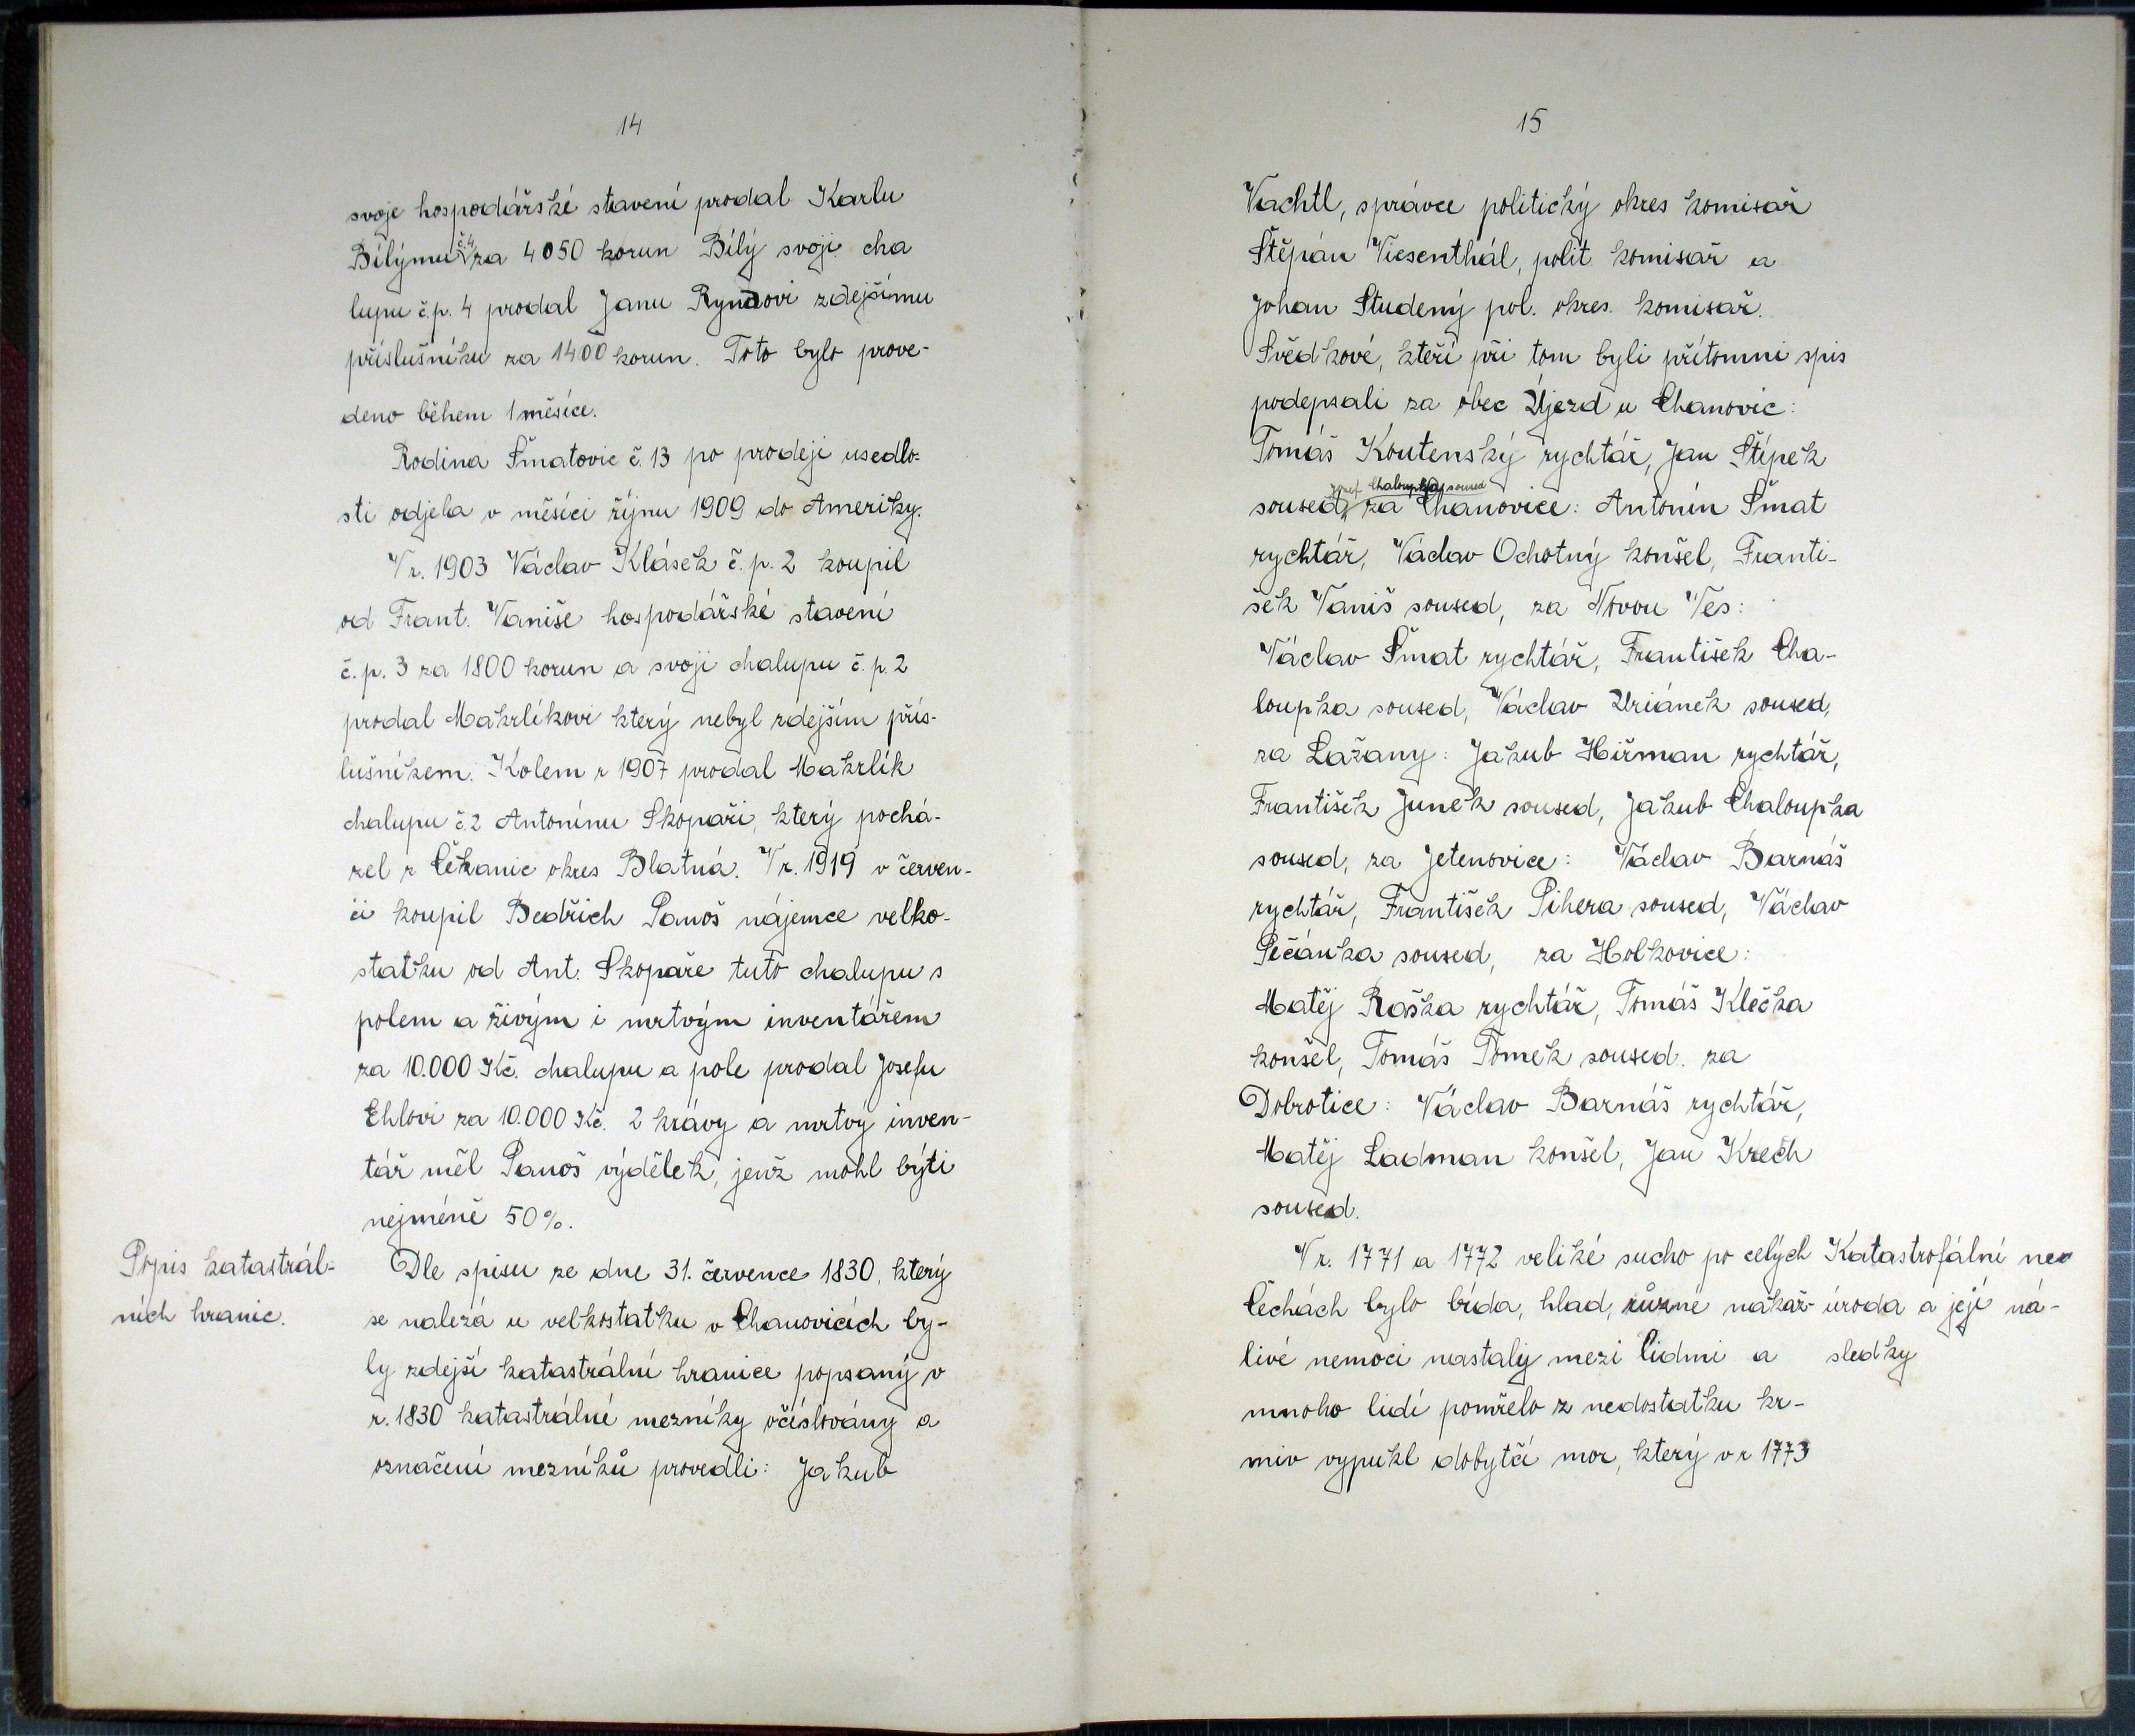 14
svoje hospodářské stavení prodal Karlu
Bílýmu č.4 za 4050 korun Bílý svoji cha
lupu č.p. 4 prodal Janu Ryndovi zdejšímu
příslušníku za 1400 korun. Toto bylo prove-
deno během 1 měsíce.
Rodina Šmatovic č. 13 po prodeji usedlo-
sti odjela v měsíci říjnu 1909 do Ameriky.
V r. 1903 Václav Klásek č. p. 2 koupil
od Frant. Vaniše hospodářské stavení
č. p. 3 za 1800 korun a svoji chalupu č. p. 2
prodal Makrlíkovi který nebyl zdejším přís-
lušníkem. Kolem r 1907 prodal Makrlík
chalupu č.2 Antonínu Skopaři, který pochá-
zel z Čekanic okres Blatná. V r. 1919 v červen-
ci koupil Bedřich Panoš nájemce velko-
statku od Ant. Skopaře tuto chalupu s
polem a živým i mrtvým inventářem
za 10.000 Kč. chalupu a pole prodal Josefu
Ehlovi za 10.000 Kč. 2 krávy a mrtvý inven-
tář měl Panoš výdělek, jenž mohl býti
nejméně 50%.
Popis katastrál-
ních hranic.
Dle spisu ze dne 31. července 1830, který
se nalezá u velkostatku v Chanovicích by-
ly zdejší katastrální hranice popsaný v
r. 1830 katastrální mezníky očíslovány a
označení mezníků provedli: Jakub
15
Vachtl, správce politický okres komisař
Štěpán Viesenthál, polit komisař a
Johan Studený pol. okres. komisař.
Svědkové, kteří při tom byli přítomni spis
podepsali za obec Újezd u Chanovic:
Tomáš Koutenský rychtář, Jan Štípek
Josef Chaloupka soused
soused, za Chanovice: Antonín Šmat
rychtář, Václav Ochotný konšel, Franti-
šek Vaniš soused, za Novou Ves:
Václav Šmat rychtář, František Cha-
loupka soused, Václav Uriánek soused,
za Lažany: Jakub Hiřman rychtář,
František Junek soused, Jakub Chaloupka
soused, za Jetenovice: Václav Barnáš
rychtář, František Pihera soused, Václav
Pečánka soused, za Holkovice:
Matěj Raška rychtář, Tomáš Klečka
konšel, Tomáš Tomek soused. za
Dobrotice: Václav Barnáš rychtář,
Matěj Ladman konšel, Jan Krech
soused.
V r. 1771 a 1772 veliké sucho po celých
Čechách bylo bída, hlad, různé nakaž-
livé nemoci nastaly mezi lidmi a
mnoho lidí pomřelo z nedostatku kr-
miv vypukl dobytčí mor, který v r 1773
Katastrofální ne
úroda a její ná-
sledky